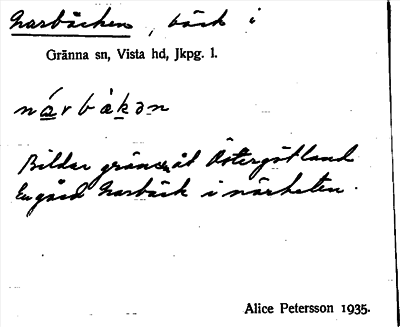 Narbäcken, bäck i
Gränna sn, Vista hd, Jkpg. l.
nárbäkən
Bildar gräns åt Östergötland
En gård Narbäck i närheten.
Alice Petersson 1935.